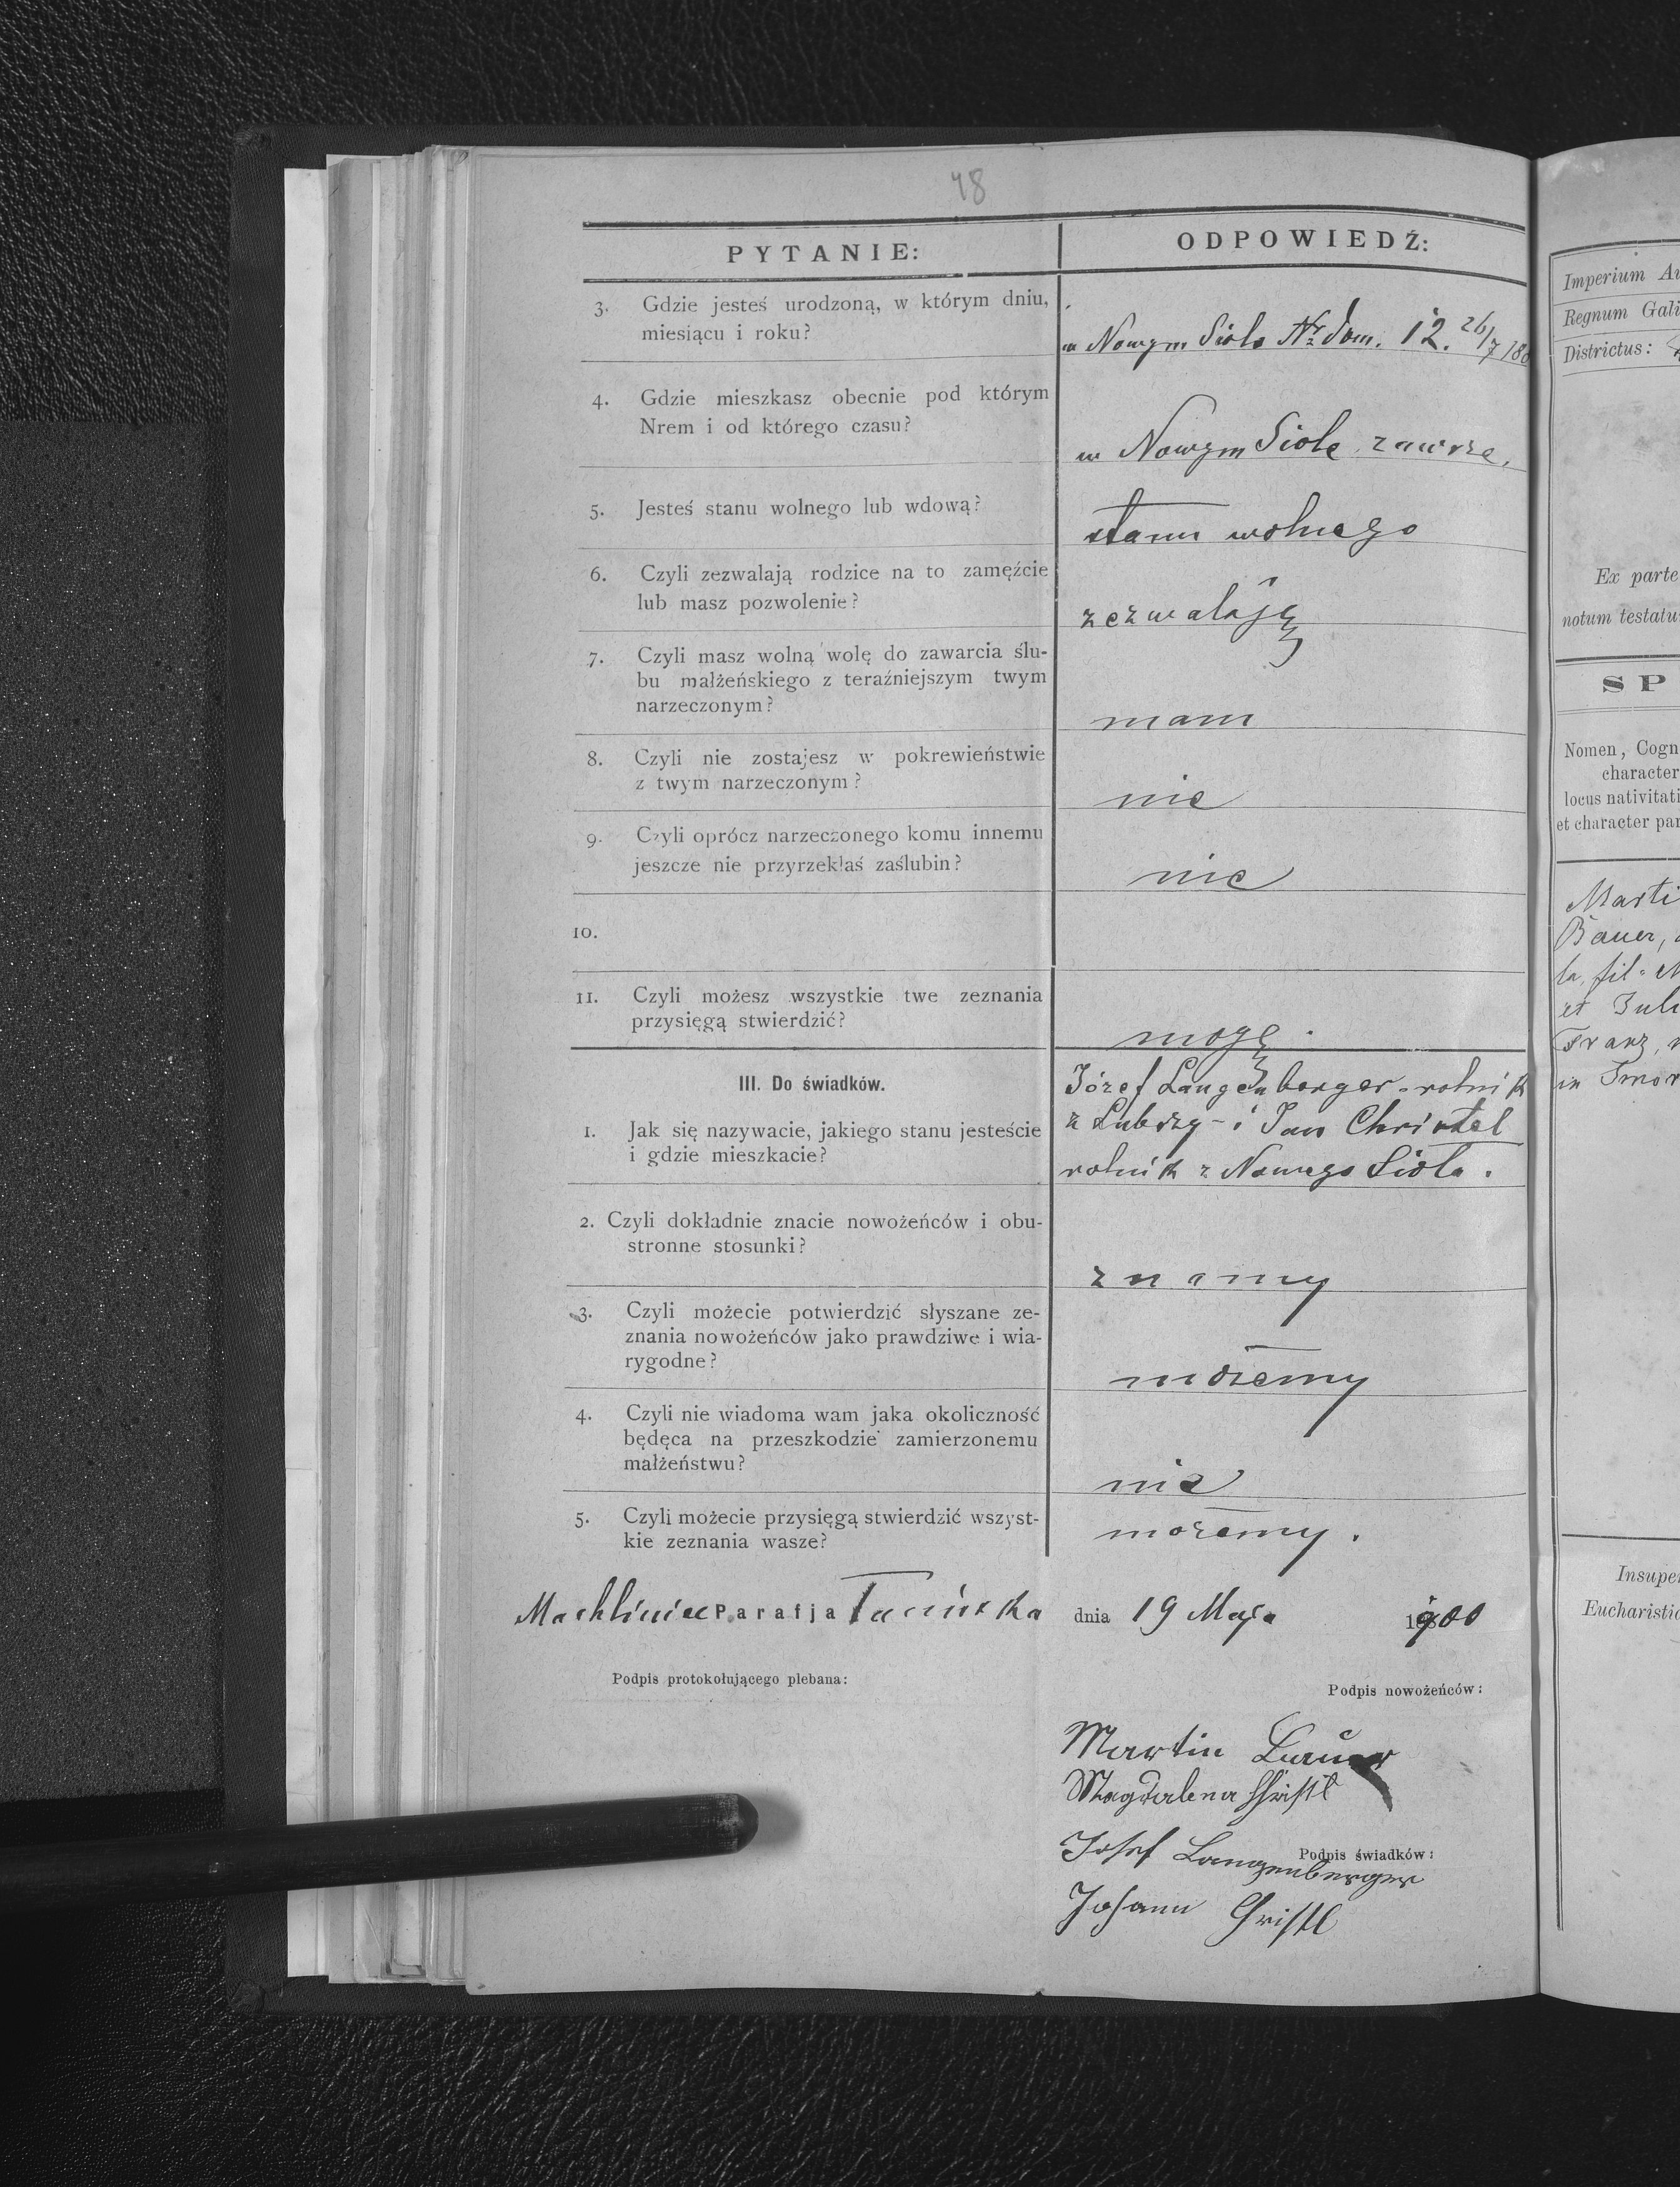 48
PYTANIE:
ODPOWIEDŹ:
3. Gdzie jesteś urodzoną, w którym dniu,
miesiącu i roku?
w Nowym Siole Nr dom. 12. 26/7 18
4. Gdzie mieszkasz obecnie pod którym
Nrem i od którego czasu?
w Nowym Siole zawsze.
5. Jesteś stanu wolnego lub wdową?
stanu wolnego
6. Czyli zezwalają rodzice na to zamęźcie
lub masz pozwolenie?
zezwalają
7. Czyli masz wolną wolę do zawarcia ślu-
bu małżeńskiego z teraźniejszym twym
narzeczonym?
mam
8. Czyli nie zostajesz w pokrewieństwie
z twym narzeczonym?
nie
9. Czyli oprócz narzeczonego komu innemu
jeszcze nie przyrzekłaś zaślubin?
nie
10.
11. Czyli możesz wszystkie twe zeznania
przysięgą stwierdzić?
mogę.
III. Do świadków.
1. Jak się nazywacie, jakiego stanu jesteście
i gdzie mieszkacie?
Józef Langenberger - rolnik
z Lubszy - i Jan Christel
rolnik z Nowego Sioła.
2. Czyli dokładnie znacie nowożeńców i obu-
stronne stosunki?
znamy
3. Czyli możecie potwierdzić słyszane ze-
znania nowożeńców jako prawdziwe i wia-
rygodne?
możemy
4. Czyli nie wiadoma wam jaka okoliczność
będęca na przeszkodzie zamierzonemu
małżeństwu?
nie
5. Czyli możecie przysięgą stwierdzić wszyst-
kie zeznania wasze?
możemy.
Machliniec Parafja dnia 19 Maja 1900
Podpis protokołującego plebana:
Podpis nowożeńców:
Martin Bauer
Magdalena Christl
Podpis świadków:
Josef Langenberger
Johann Christl
Imperium Au
Regnum Gali
Districtus:
Ex parte
notum testatu
SP
Nomen, Cogn
character
locus nativitati
et character par
Marti
Bauer,
la, fil. M
et Juli
Franz,
in Smor
Insuper
Eucharistic